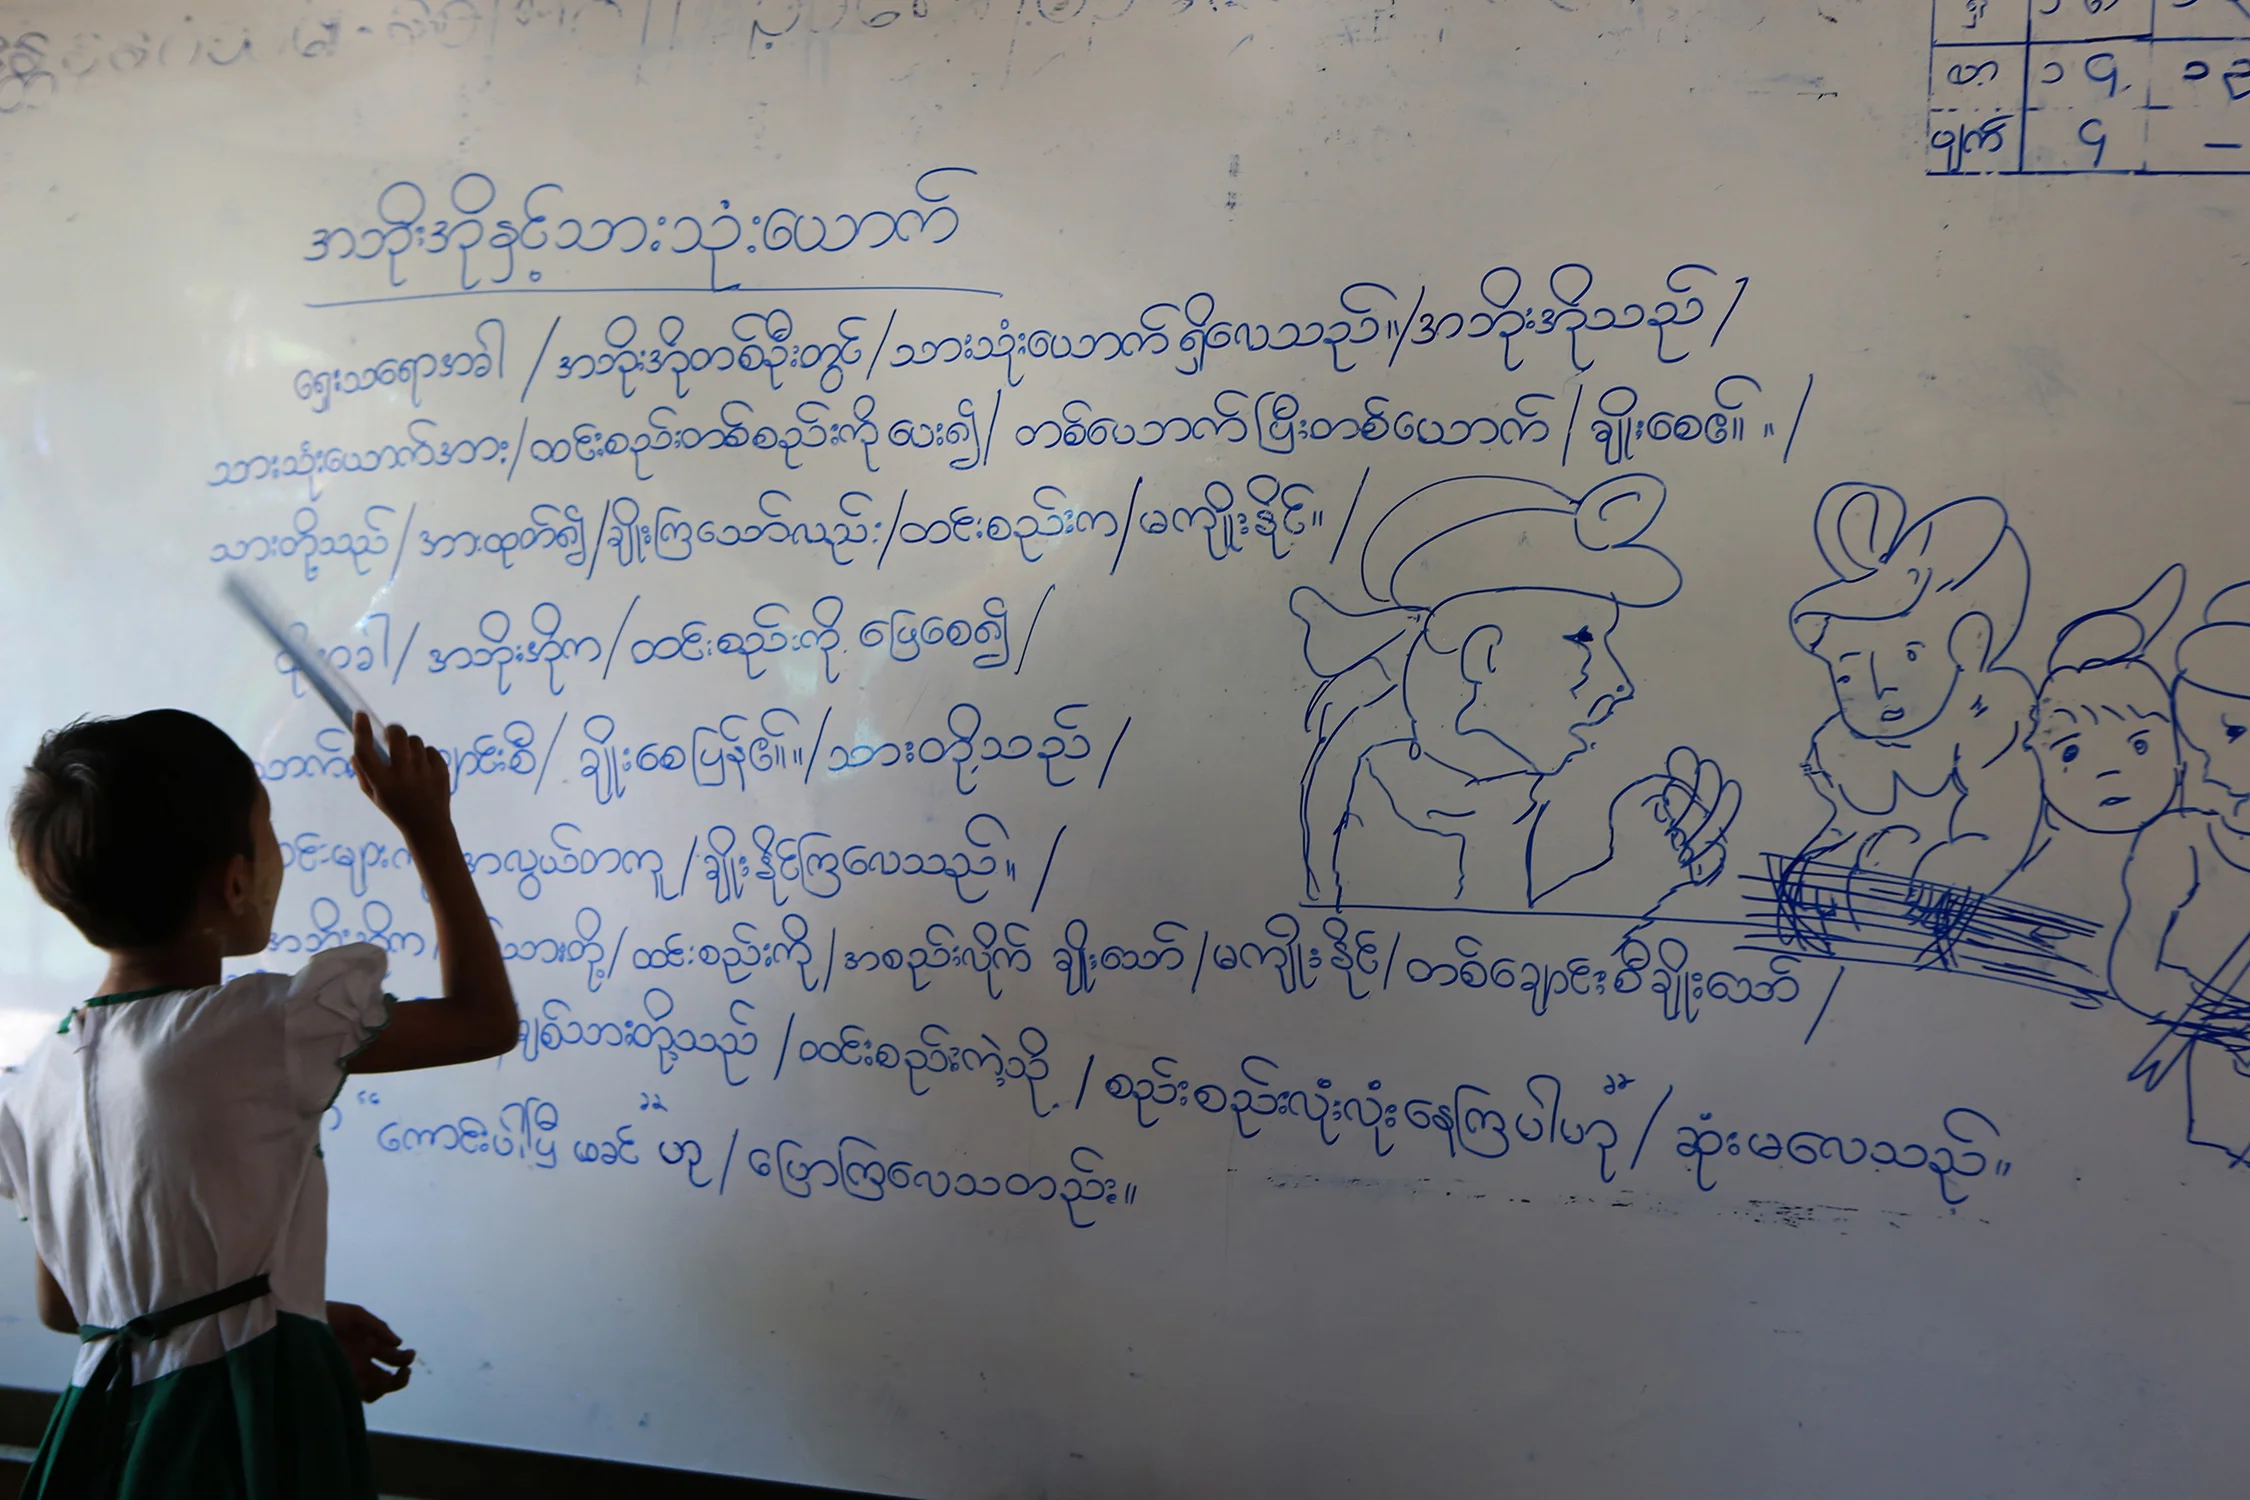 လာ ၁၄ ၁၃
ပျက် ၄ –
အဘိုးအိုနှင့်သားသုံးယောက်
ရှေးသရောအခါ / အဘိုးအိုတစ်ဦးတွင် / သားသုံးယောက် ရှိလေသည်။ / အဘိုးအိုသည် /
သားသုံးယောက်အား / ထင်းစည်းတစ်စည်းကို ပေး၍ / တစ်ယောက်ပြီးတစ်ယောက် / ချိုးစေ၏။ /
သားတို့သည် / အားထုတ်၍ / ချိုးကြသော်လည်း / ထင်းစည်းက / မကျိုးနိုင်။ /
ထိုအခါ / အဘိုးအိုက / ထင်းစည်းကို ဖြေစေ၍ /
ချောင်းစီ / ချိုးစေပြန်၏။ / သားတို့သည် /
အလွယ်တကူ / ချိုးနိုင်ကြလေသည်။ /
အဘိုးအိုက / သားတို့ / ထင်းစည်းကို / အစည်းလိုက် ချိုးသော် / မကျိုးနိုင် / တစ်ချောင်းစီချိုးသော် /
ချစ်သားတို့သည် / ထင်းစည်းကဲ့သို့ / စည်းစည်းလုံးလုံးနေကြပါဟု” / ဆုံးမလေသည်။
“ကောင်းပါပြီ ဖခင်” ဟု / ပြောကြလေသတည်း။